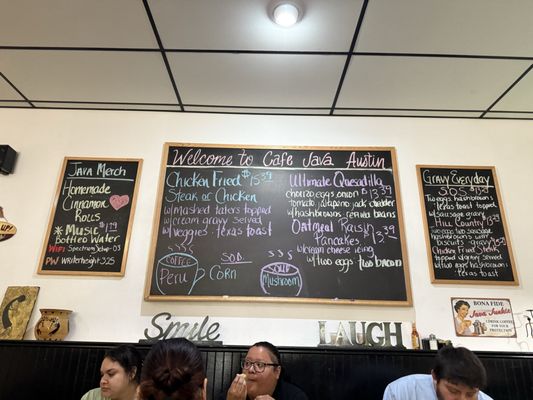 Java Merch
Homemade
Cinnamon
Rolls
*Music
Bottled Water
WiFi Spectrum Setup-D3
PW
Welcome to Cafe Java Austin
Chicken Fried $15.39
Steak or Chicken
w/mashed taters topped
w/cream gravy served
w/veggies - texas toast
Coffee
Peru
S.O.D.
Corn
Soup
Mushroom
Ultimate Quesadilla
chorizo eggs onion $13.39
tomato jalapeno jack cheddar
w/hashbrowns refried beans
Oatmeal Raisin
Pancakes
w/cream cheese icing
w/two eggs two bacon
Gravy Everyday
S.O.S
two eggs hashbrowns
texas toast topped
w/sausage gravy
Hill Country
two eggs two sausage
hashbrowns w/two
biscuits gravy
Chicken Fried Steak
topped w/cream gravy
two eggs hashbrowns
texas toast
Smile
LAUGH
BONA FIDE
Java Junkie